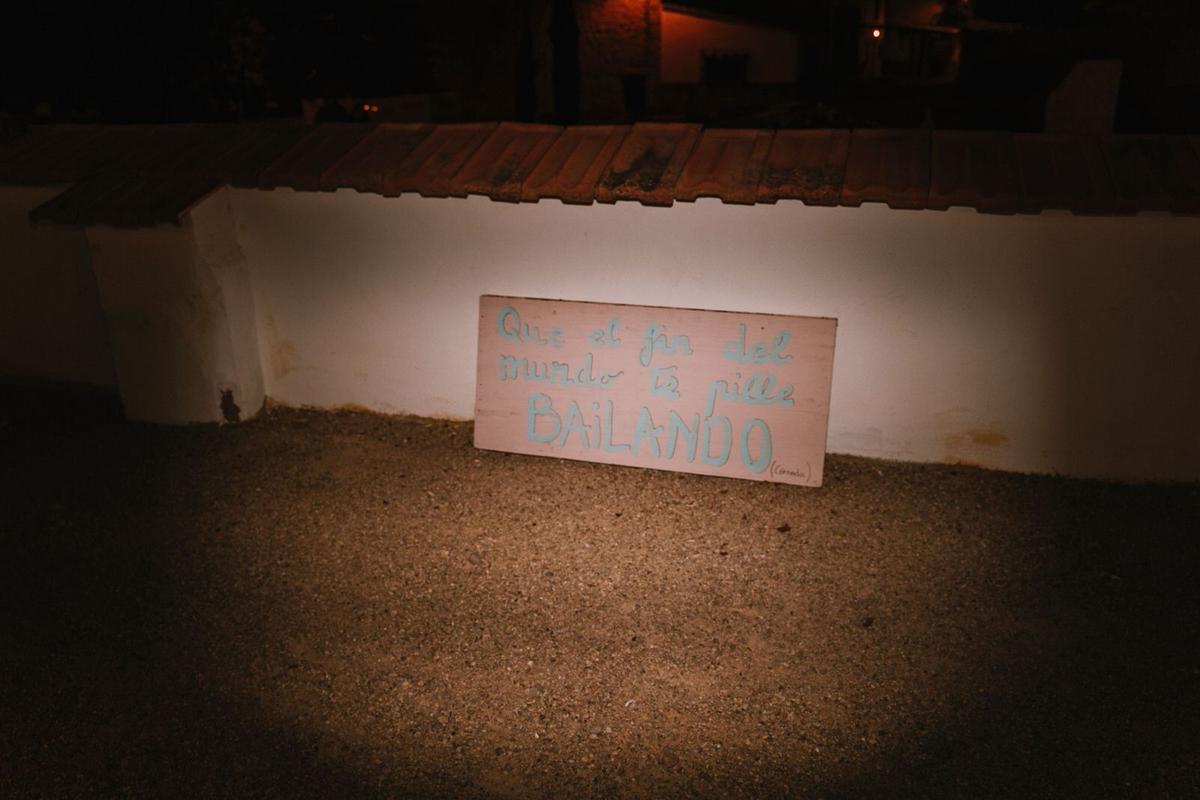 Que el fin del
mundo te pille
BAiLANDO